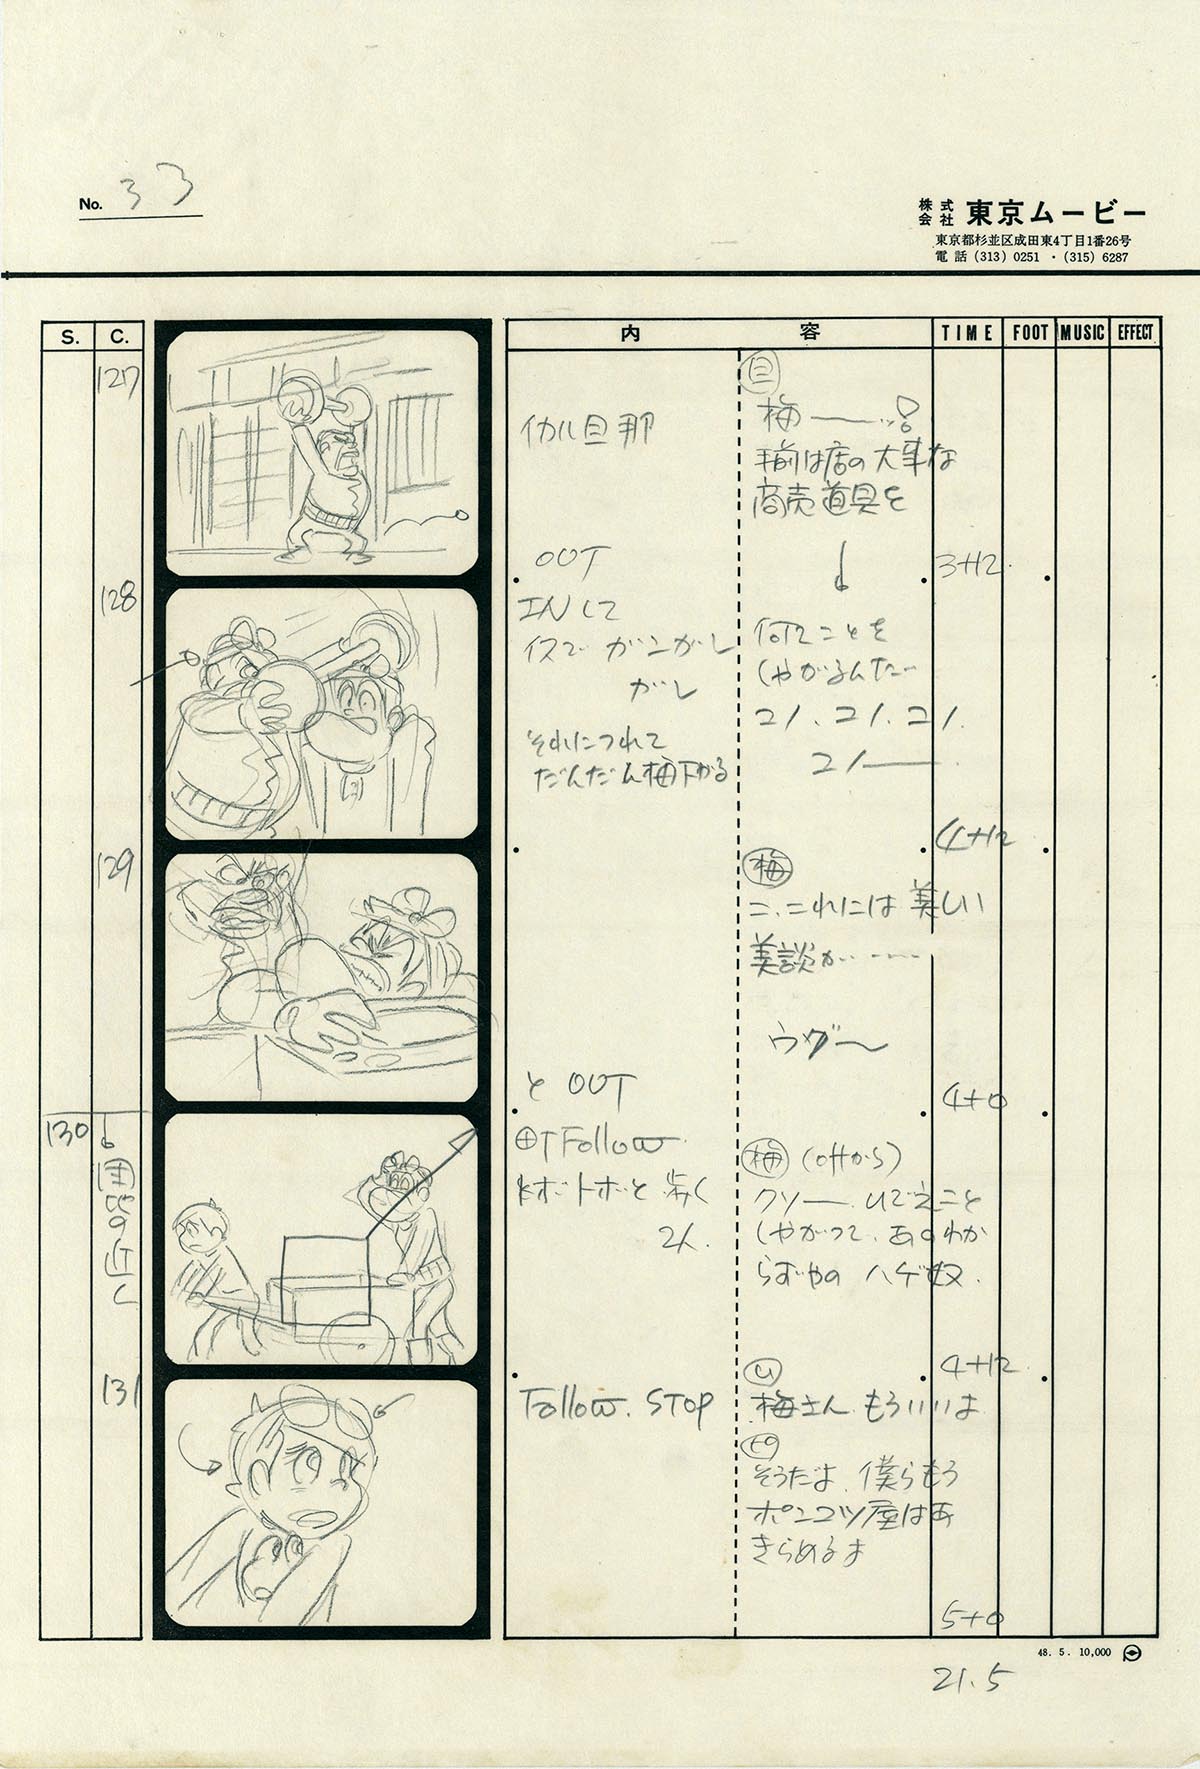 No. 33
株式
会社
東京ムービー
東京都杉並区成田東4丁目1番26号
電話 (313) 0251 ・ (315) 6287
S.
C.
内容
TIME
FOOT
MUSIC
EFFECT
127
イカル旦那
旦
梅——…!
手前は店の大事な
商売道具を
OUT
3+12
128
INして
イスで ガンガし
ガし
それにつれて
だんだん梅下がる
何てことを
しやがるんだ…
コノ、コノ、コノ、
コノ——
4+12
129
梅
こ、これには美しい
美談が……
ウグ〜
と OUT
4+0
130
Follow
トボトボと歩く
2人.
梅 (offから)
クソー ひでえこと
しやがって、あのわか
らずやの ハゲ奴.
4+12
131
Follow. STOP
ひ
梅さん もういいよ
ピ
そうだよ、僕らもう
ポンコツ屋はあ
きらめるよ
5+0
48. 5. 10,000
21.5